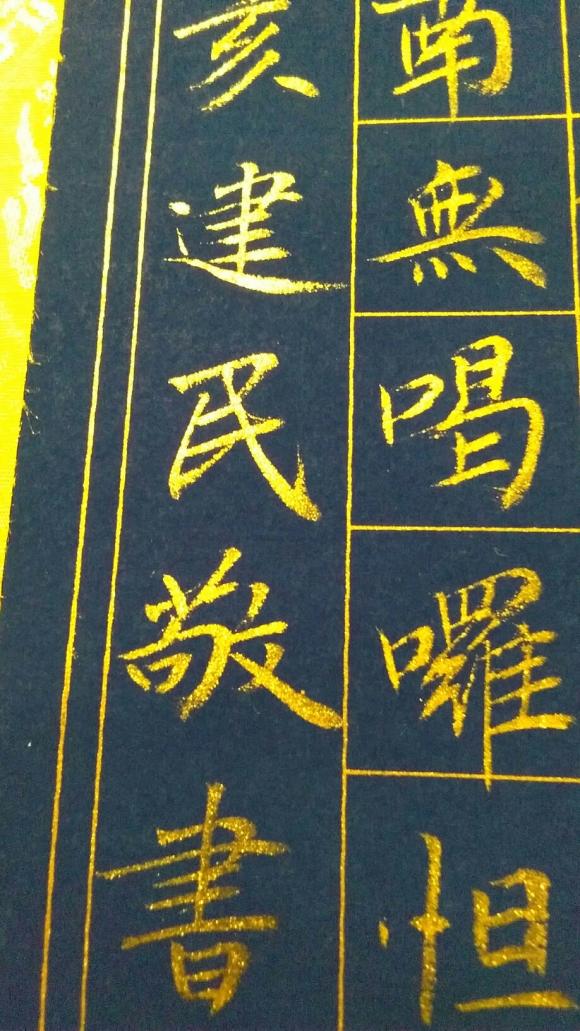 南無喝囉怛
亥建民敬書